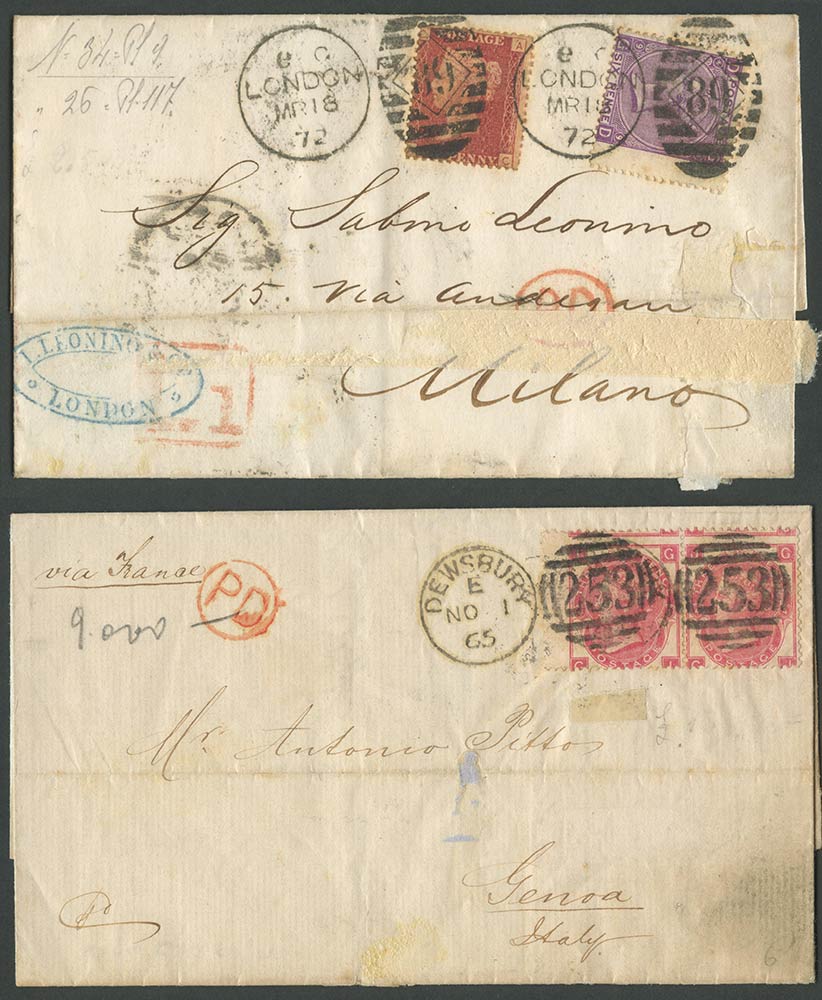 N. 34 = Pl 9.
" 26 = Pl. 117.
e C
LONDON
MR 18
72
89
POSTAGE
A
C
e C
LONDON
MR 18
72
89
SIX PENCE
D
9
Sig Sabino Leonino
15. Via
PD
Milano
L. LEONINO & Co
LONDON
1
via France
PD
9.000 —
DEWSBURY
E
NO 1
65
253
253
G
G
POSTAGE
POSTAGE
G I
G
Mr. Antonio Pitto
Genoa
Italy.
6